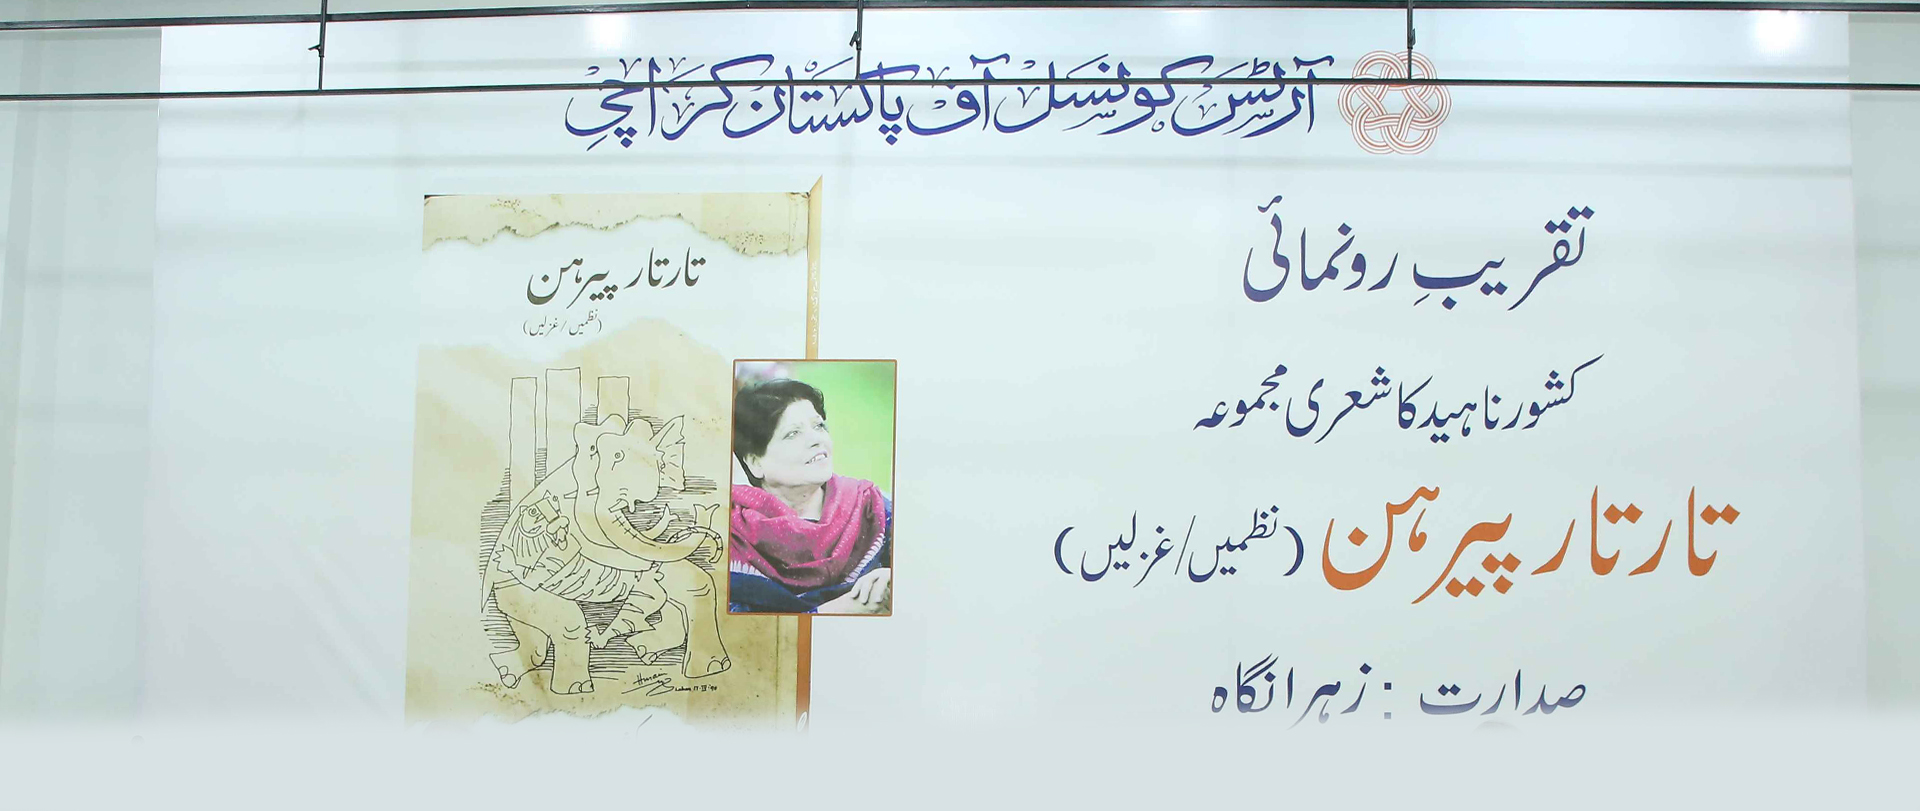 آرٹس کونسل آف پاکستان کراچی
تقریبِ رونمائی
کشور ناہید کا شعری مجموعہ
تارتار پیرہن (نظمیں/غزلیں)
صدارت : زہرا نگاہ
تارتار پیرہن
(نظمیں/غزلیں)